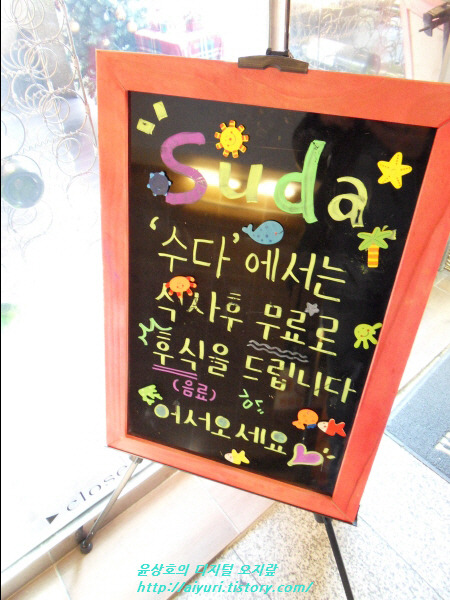 Suda
'수다'에서는
식사후 무료로
후식을 드립니다
(음료)
어서오세요
close
윤상호의 디지털 오지랖
http://aiyuri.tistory.com/